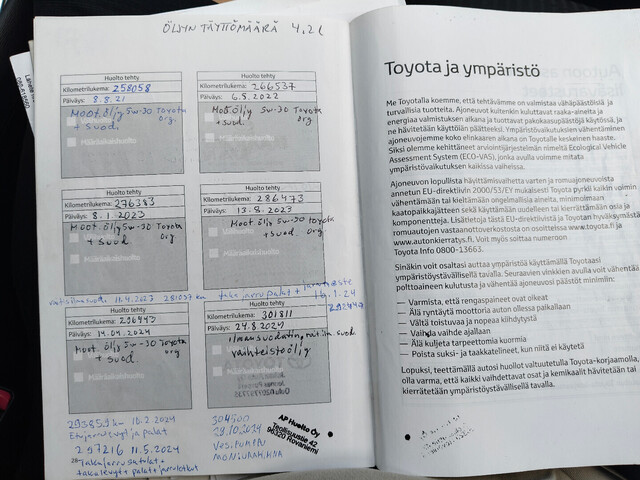 ÖLJYN TÄYTTÖMÄÄRÄ 4.2 L
Huolto tehty
Kilometrilukema: 258058
Päiväys: 8.8.21
Moot.öljy 5w-30 Toyota
+ suod. org.
Huolto tehty
Kilometrilukema: 266537
Päiväys: 6.5.2022
Moot.öljy 5w-30 Toyota
+ suod. org.
Huolto tehty
Kilometrilukema: 276383
Päiväys: 8.1.2023
Moot.öljy 5w-30 Toyota
+ suod org
Huolto tehty
Kilometrilukema: 286473
Päiväys: 13.8.2023
Moot.öljy 5w-30 Toyota
+ suod. org
11.4.2023 281037 km taka jarrupalat +
16.1.24
Huolto tehty
Kilometrilukema: 296443
Päiväys: 14.04.2024
Moot öljy 5w-30 Toyota
+ suod org.
Huolto tehty
Kilometrilukema: 301811
Päiväys: 24.8.2024
ilmansuodatin, raitisilm.suod.
vaihteistoöljy
293859 km 10.2.2024
Etujarrulevyt ja palat
297216 11.5.2024
Takajarrusatulat +
takalevyt+ palat+
304500
29.10.2024
VESIPUMPPU
MONIURAHIHNA
AP Huolto Oy
Teollisuustie 42
96320 Rovaniemi
Toyota ja ympäristö
Me Toyotalla koemme, että tehtävämme on valmistaa vähäpäästöisiä ja
turvallisia tuotteita. Ajoneuvot kuitenkin kuluttavat raaka-aineita ja
energiaa valmistuksen aikana ja tuottavat pakokaasupäästöjä käytössä, ja
ne hävitetään käyttöiän päätteeksi. Ympäristövaikutuksien vähentäminen
ajoneuvojemme koko elinkaaren aikana on Toyotalle keskeinen haaste.
Siksi olemme kehittäneet arviointijärjestelmän nimeltä Ecological Vehicle
Assessment System (ECO-VAS), jonka avulla voimme mitata
ympäristövaikutuksen kaikissa vaiheissa.
Ajoneuvon lopullista hävittämisvaihetta varten ja romuajoneuvoista
annetun EU-direktiivin 2000/53/EY mukaisesti Toyota pyrkii kaikin voimin
vähentämään tai kieltämään ongelmallisia aineita, minimoimaan
kaatopaikkajätteen sekä käyttämään uudelleen tai kierrättämään osia ja
komponentteja. Lisätietoja tästä EU-direktiivistä ja Toyotan hyväksymästä
romuautojen vastaanottoverkostosta on osoitteissa www.toyota.fi ja
www.autonkierratys.fi. Voit myös soittaa numeroon
Toyota Info 0800-13663.
Sinäkin voit osaltasi auttaa ympäristöä käyttämällä Toyotaasi
ympäristöystävällisellä tavalla. Seuraavien vinkkien avulla voit vähentää
polttoaineen kulutusta ja vähentää ajoneuvosi päästöt minimiin:
— Varmista, että rengaspaineet ovat oikeat
— Älä ryntäytä moottoria auton ollessa paikallaan
— Vältä toistuvaa ja nopeaa kiihdytystä
— Vaihda vaihde ajallaan
— Älä kuljeta tarpeettomia kuormia
— Poista suksi- ja taakkatelineet, kun niitä ei käytetä
Lopuksi, teettämällä autosi huollot valtuutetulla Toyota-korjaamolla,
olla varma, että kaikki vaihdettavat osat ja kemikaalit hävitetään tai
kierrätetään ympäristöystävällisellä tavalla.